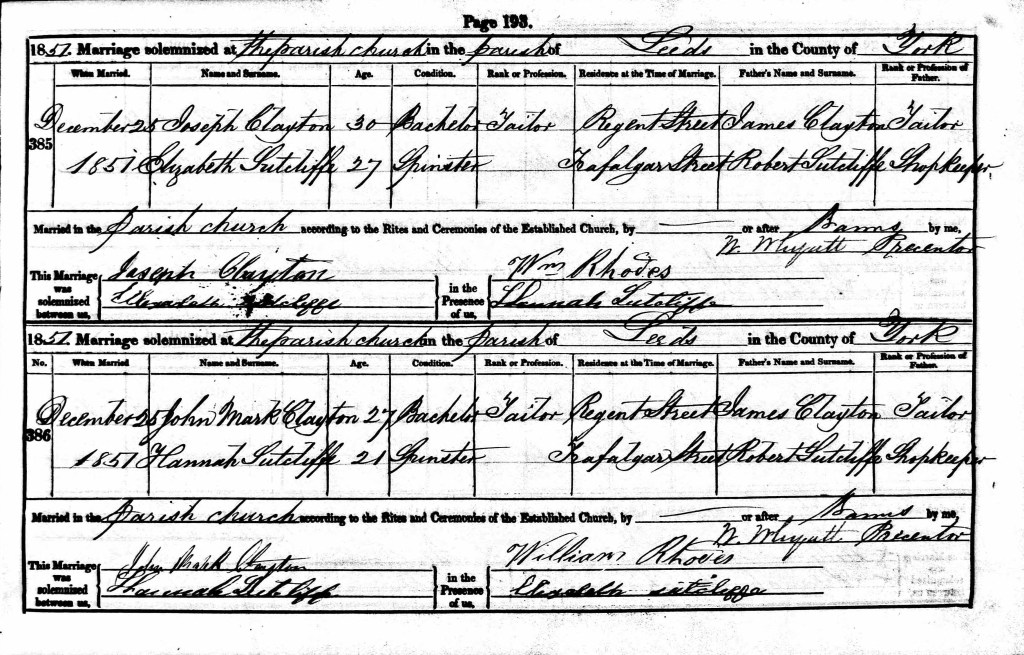 Page 193.
1851. Marriage solemnized at the parish church in the parish of Leeds in the County of York
When Married. Name and Surname. Age. Condition. Rank or Profession. Residence at the Time of Marriage. Father's Name and Surname. Rank or Profession of Father.
385 December 25 Joseph Clayton 30 Bachelor Tailor Regent Street James Clayton Tailor
1851 Elizabeth Sutcliffe 27 Spinster Trafalgar Street Robert Sutcliffe Shopkeeper
Married in the Parish church according to the Rites and Ceremonies of the Established Church, by — or after Banns by me,
Precentor
This Marriage was solemnized between us, Joseph Clayton in the Presence of us, Wm Rhodes
Elizabeth Sutcliffe Hannah Sutcliffe
1851. Marriage solemnized at the parish church in the parish of Leeds in the County of York
No. When Married Name and Surname. Age. Condition. Rank or Profession. Residence at the Time of Marriage. Father's Name and Surname. Rank or Profession of Father.
386 December 25 John Mark Clayton 27 Bachelor Tailor Regent Street James Clayton Tailor
1851 Hannah Sutcliffe 21 Spinster Trafalgar Street Robert Sutcliffe Shopkeeper
Married in the Parish church according to the Rites and Ceremonies of the Established Church, by — or after Banns by me,
Precentor
This Marriage was solemnized between us, John Mark Clayton in the Presence of us, William Rhodes
Hannah Sutcliffe Elizabeth Sutcliffe